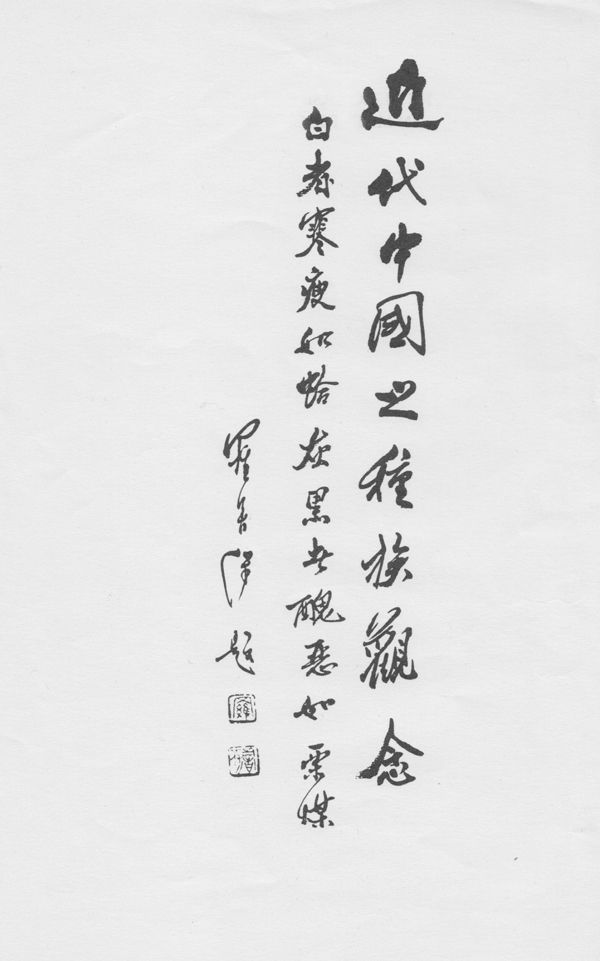 近代中國之種族觀念
白者寒瘦如蛤灰黑者醜惡如煤
題